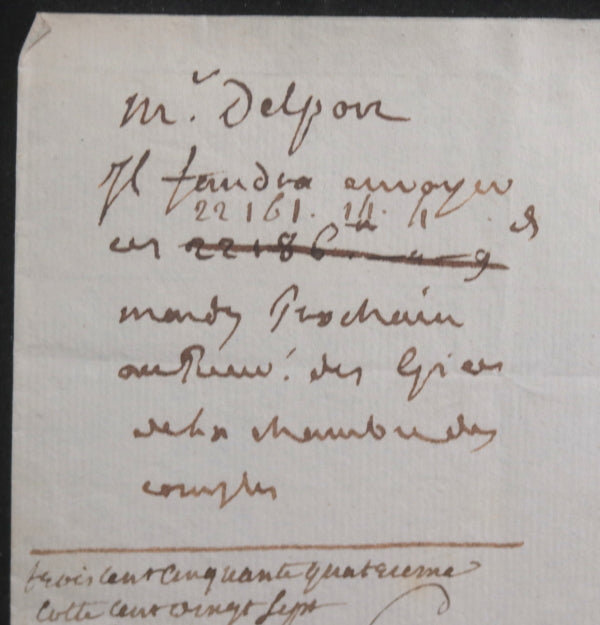 Mr. Delpon
Il faudra envoyer
22161. 14. 11 d
ces 22186 9
mardy Prochain
au des Epices
de La chambre des
comptes
trois cent cinquante quatrieme
Cotte cent vingt sept